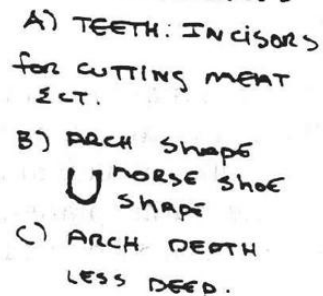 A) TEETH: INCISORS
for CUTTING MEAT
ECT.
B) ARCH SHAPE
HORSE SHOE
SHAPE
C) ARCH DEPTH
LESS DEEP.